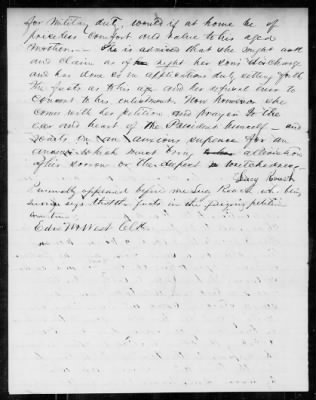 for Military duty, would if at home be of
priceless comfort and value to his aged
Mother. She is advised that she might ask
and claim as of right her sons discharge
and has done so in application duly setting forth
the facts as to his age and her refusal ever to
consent to his enlistment. Now however she
come with her petition and prayer to the
ear and heart of the President himself - and
waits in anxious suspense for an
answer which must bring alleviation
after sorrow or the deepest wretchedness
Lucy
Personally appeared before me Lucy who being
sworn says that the facts in the foregoing petition
Edw. W. West Clk.